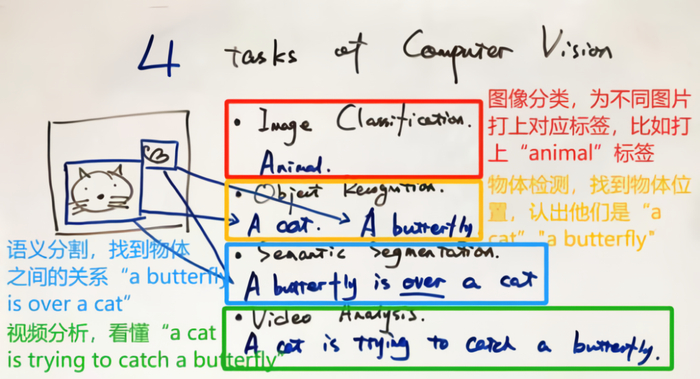 4 Tasks of Computer Vision
• Image Classification.
Animal.
图像分类，为不同图片
打上对应标签，比如打
上“animal”标签
• Object Recognition.
A cat. A butterfly.
物体检测，找到物体位
置，认出他们是“a
cat”"a butterfly"
• Semantic Segmentation.
A butterfly is over a cat
语义分割，找到物体
之间的关系“a butterfly
is over a cat”
• Video Analysis.
A cat is trying to catch a butterfly.
视频分析，看懂“a cat
is trying to catch a butterfly”